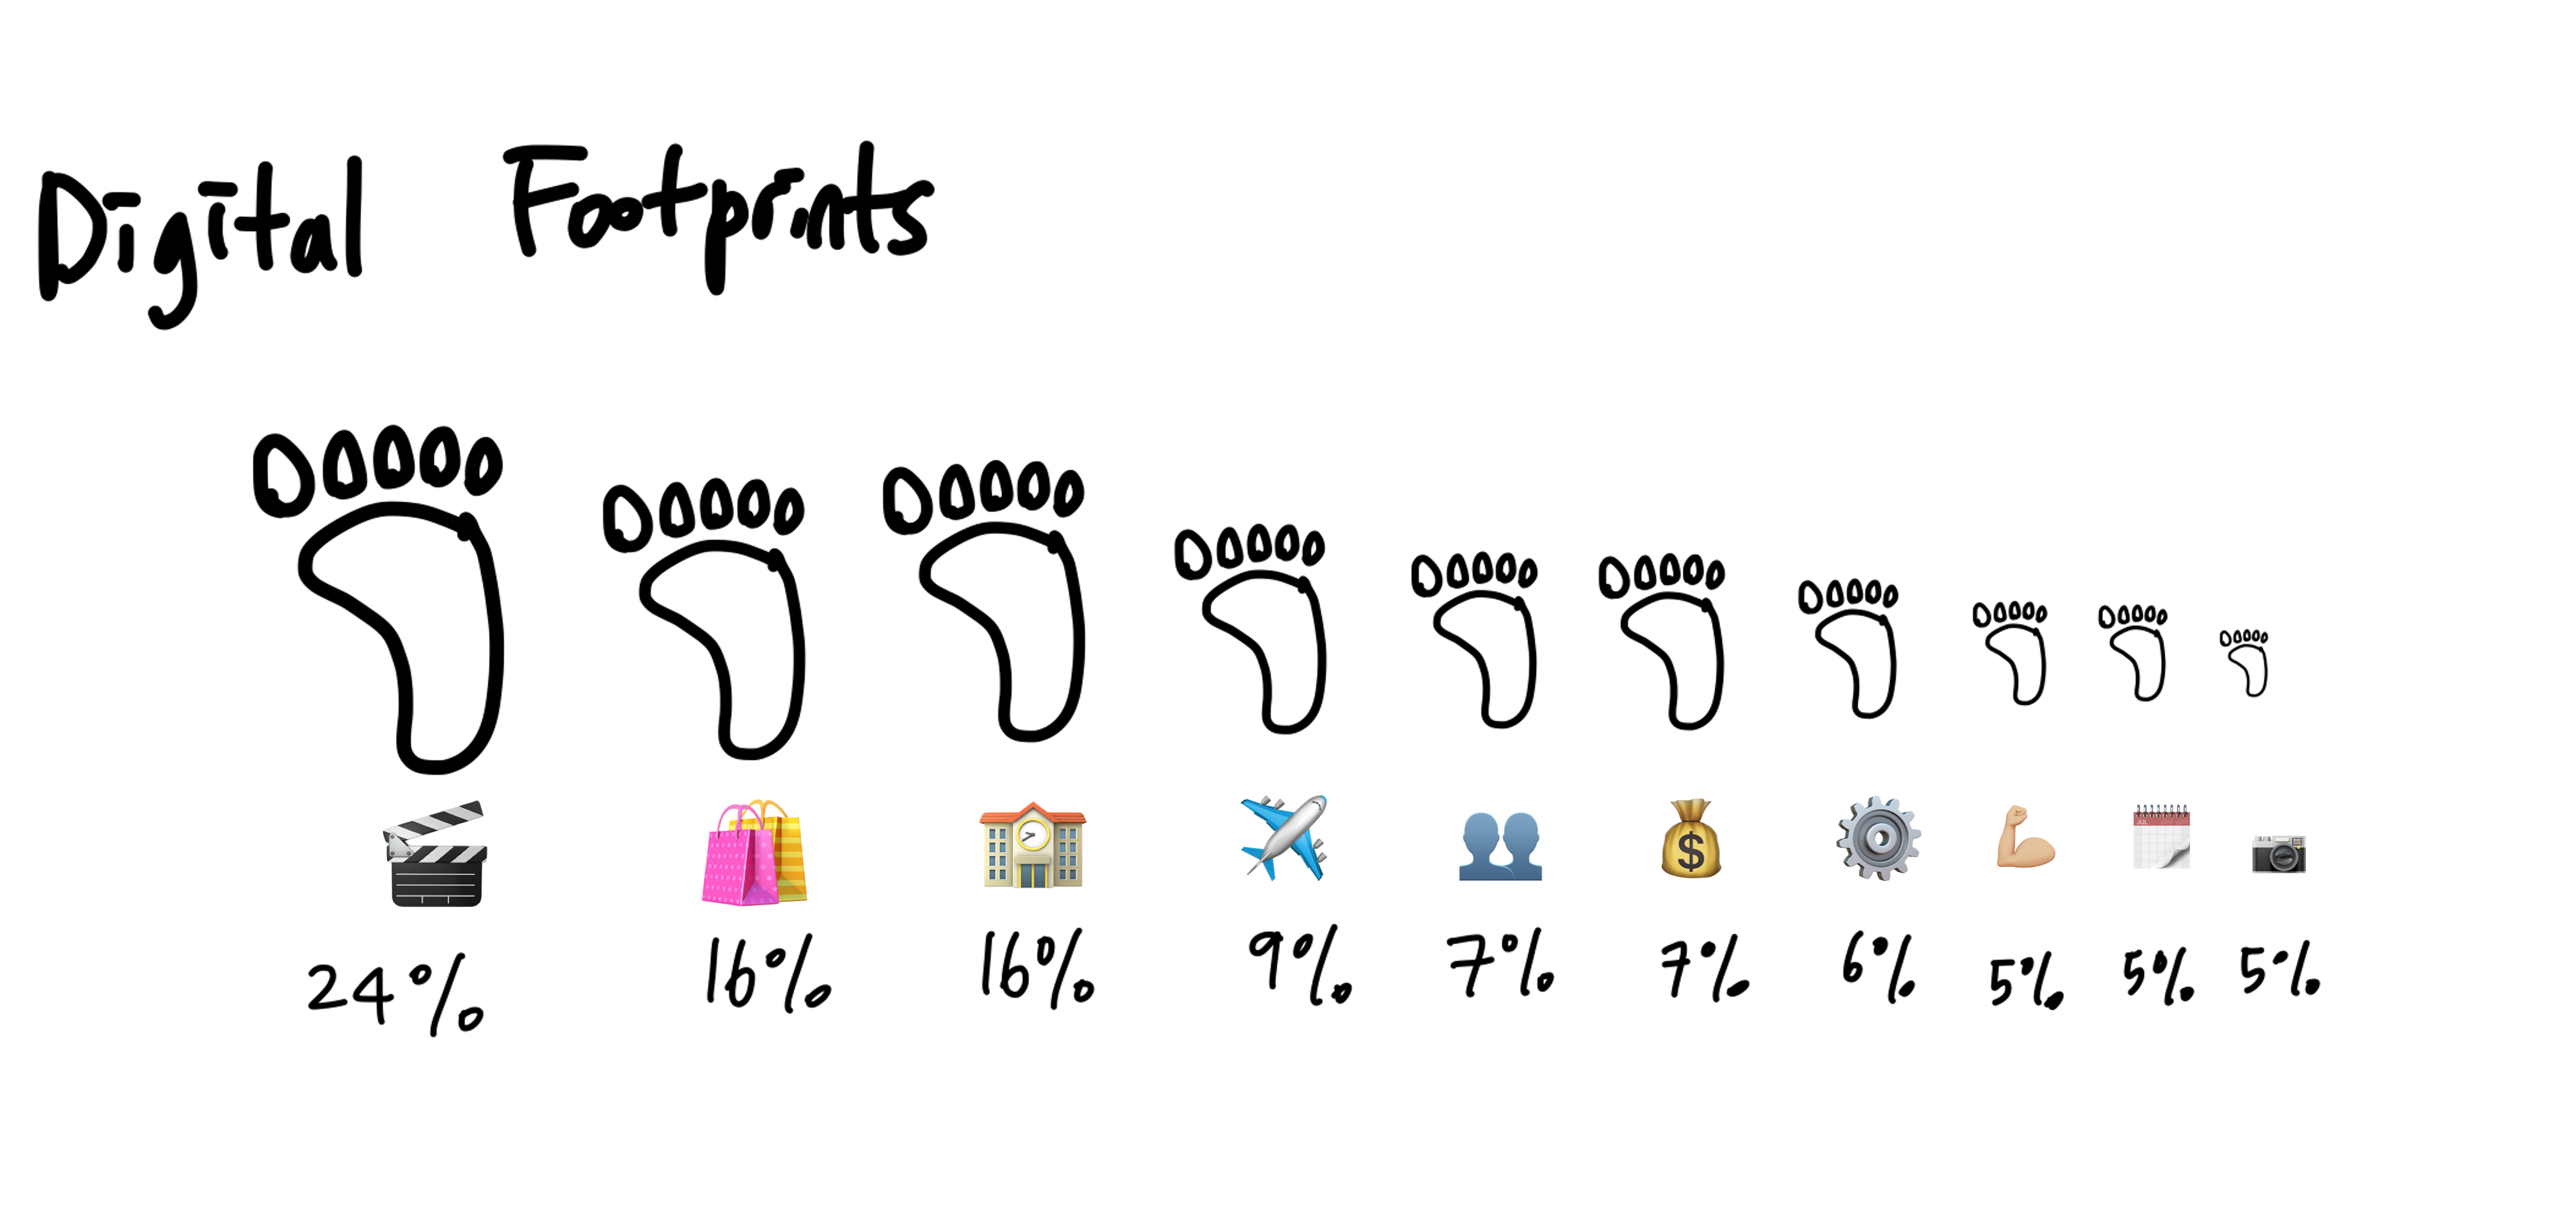 Digital Footprints
JUL
$
24% 16% 16% 9% 7% 7% 6% 5% 5% 5%